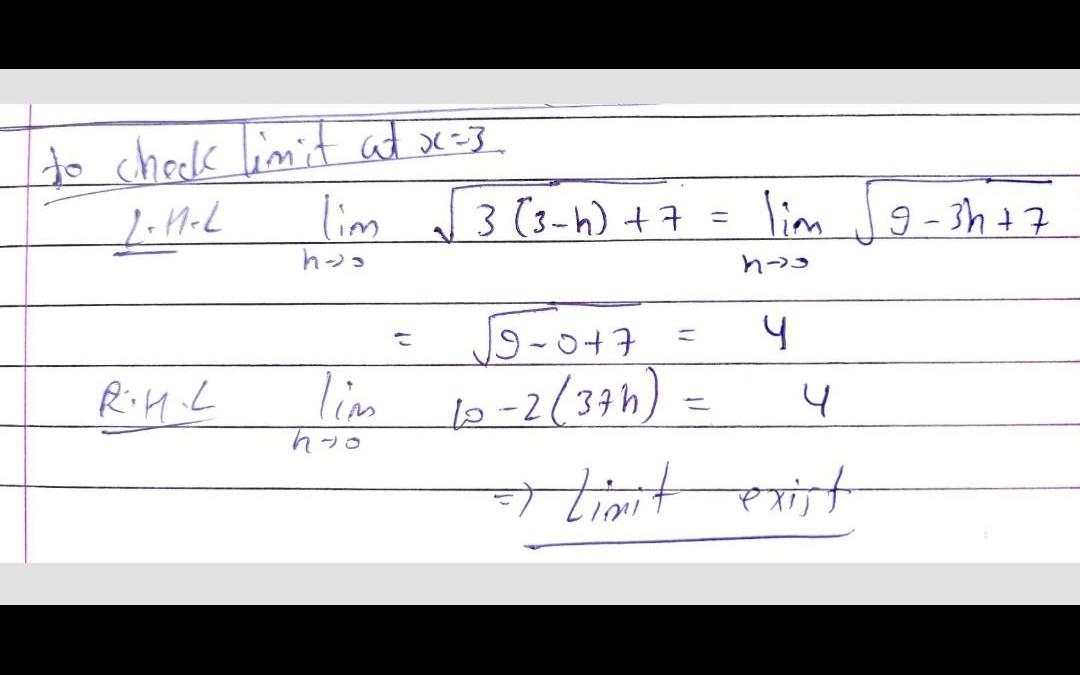 to check limit at x=3.
L.H.L lim √3(3-h)+7 = lim √9-3h+7
h→0 h→0
= √9-0+7 = 4
R.H.L lim 10-2(3+h) = 4
h→0
=> Limit exist